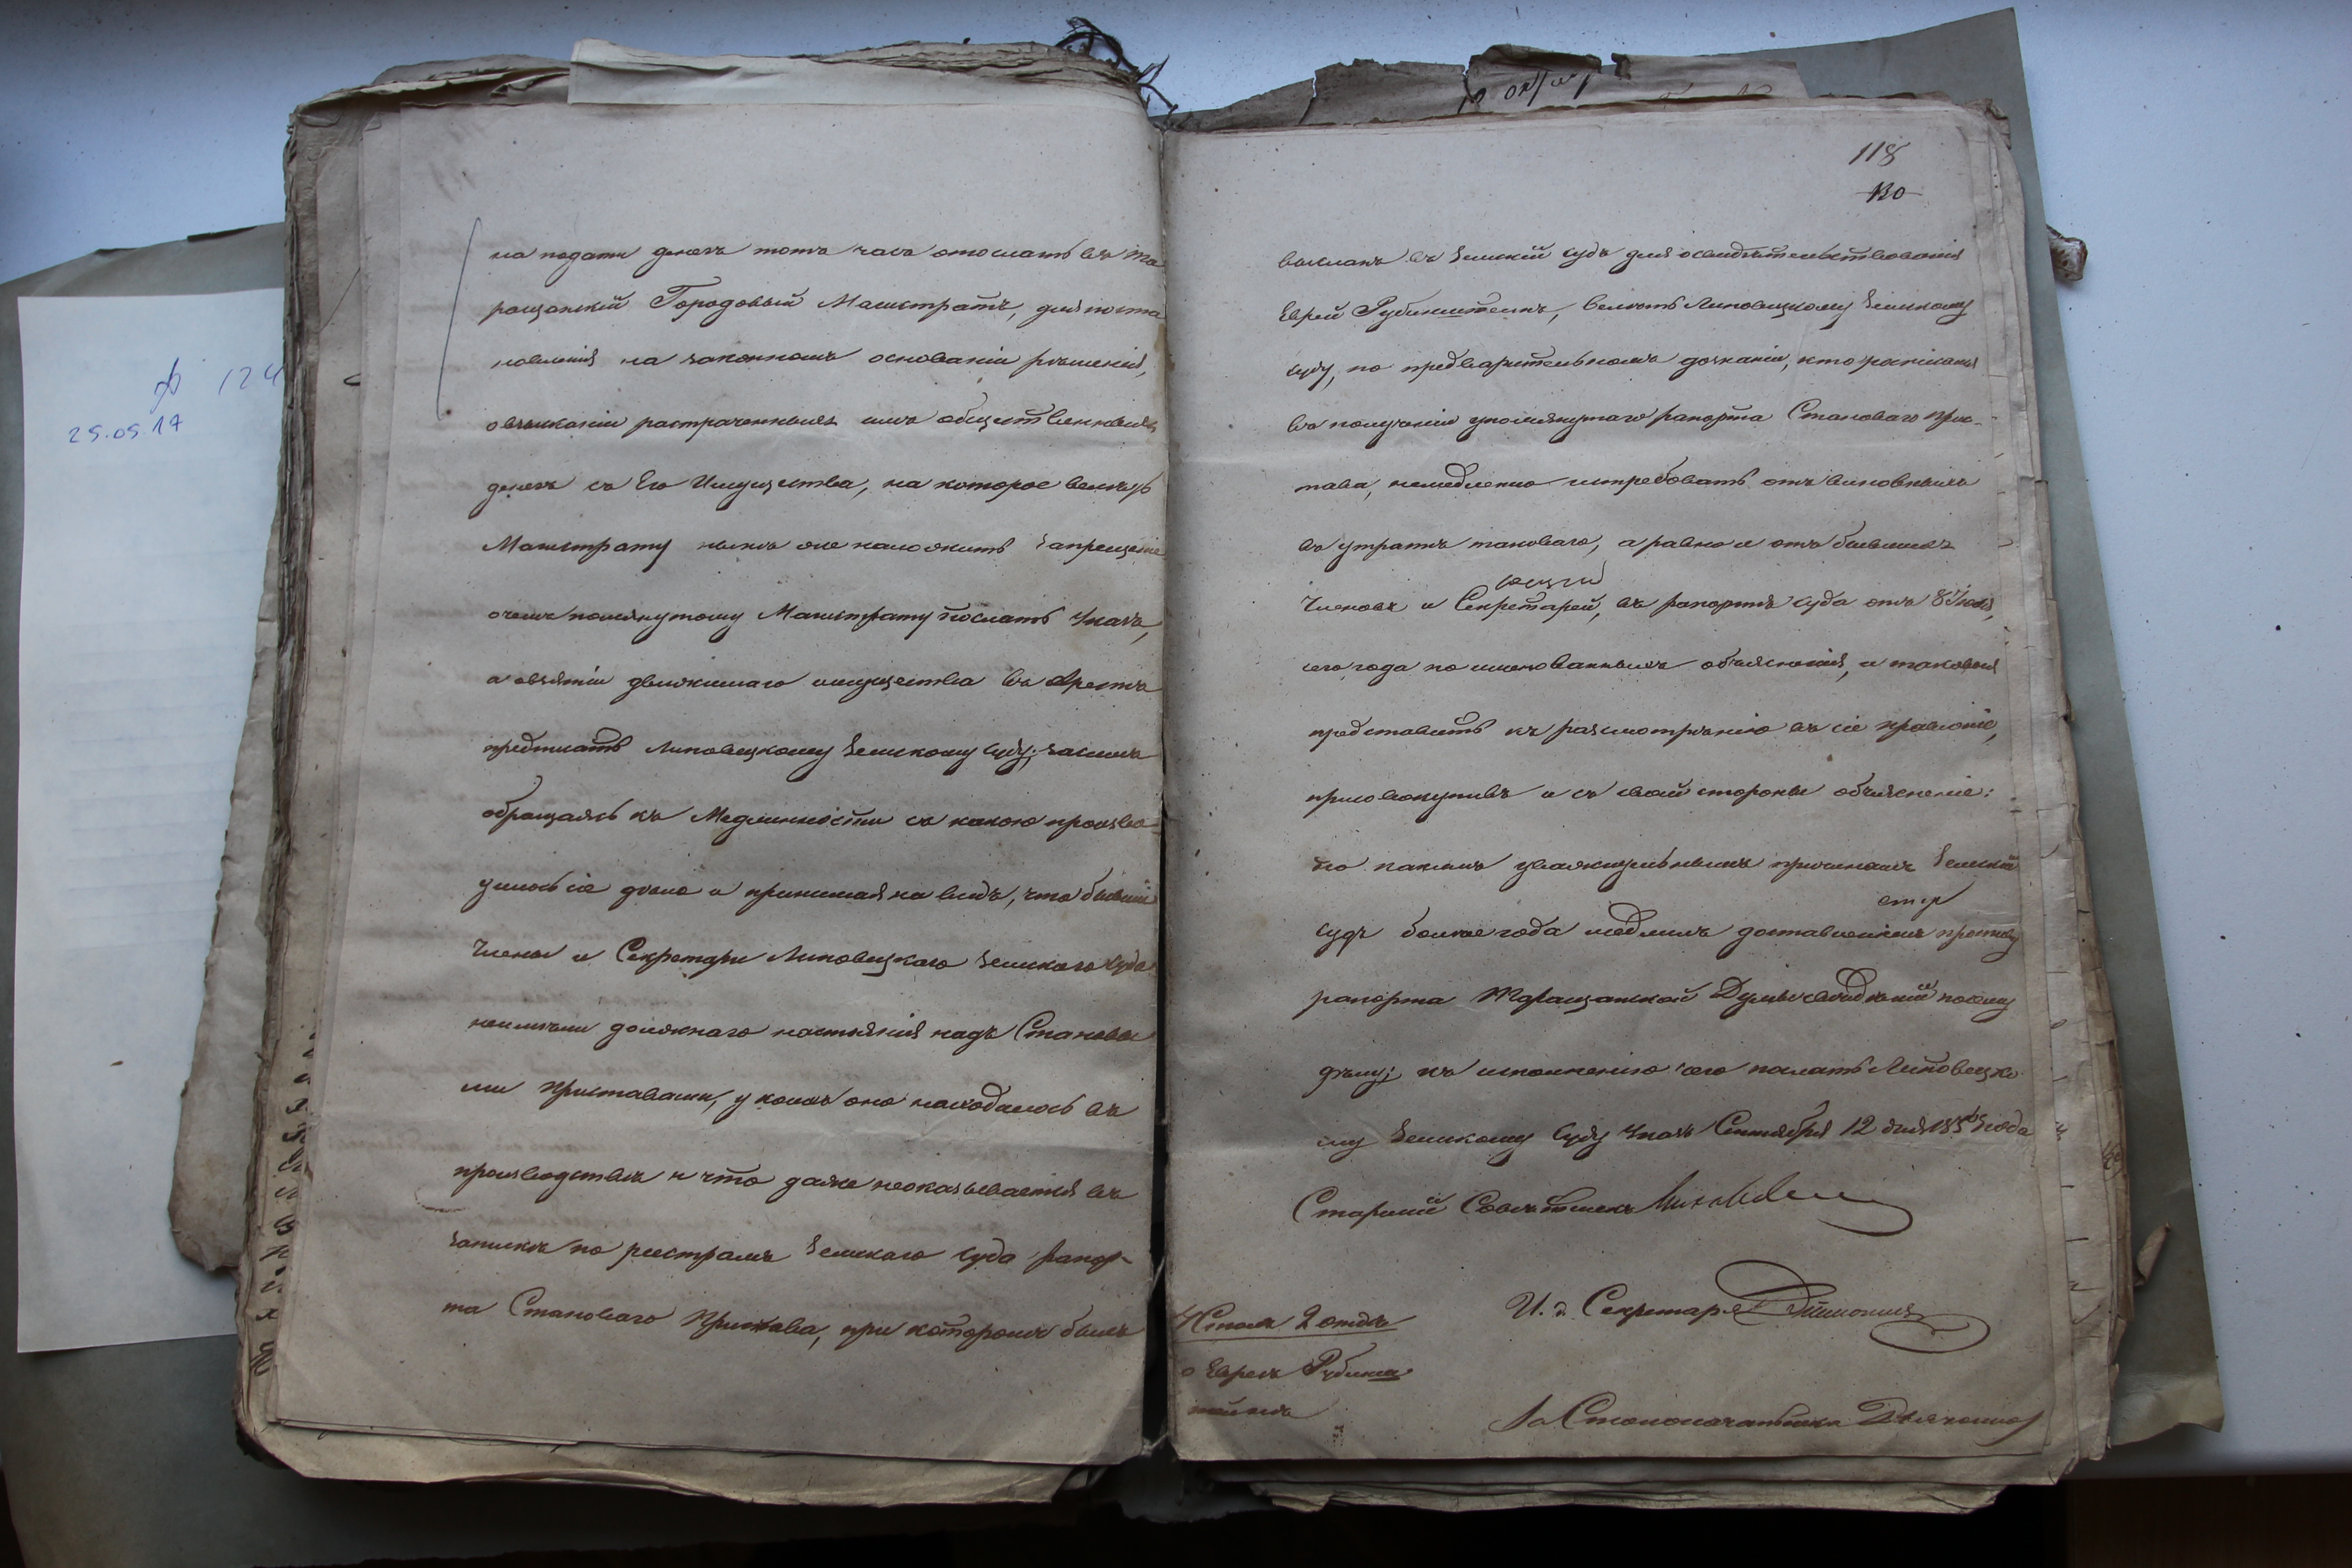 на подати денегъ тотъ часъ отослать въ Та
ращанскій Городовый Магистратъ, для поста
новленія на законномъ основаніи рѣшенія,
о взысканіи растраченныхъ имъ общественныхъ
денегъ съ Его Имущества, на которое велѣть
Магистрату нынѣ же наложить запрещеніе
о чемъ помянутому Магистрату послать Указъ,
а о взятіи движимаго имущества въ Арестъ
предписать Липовецкому Земскому Суду; засимъ
обращаясь къ Медленности съ какою произво
дилось сіе дѣло и принимая на видъ, что бывшіе
Члены и Секретари Липовецкаго Земскаго Суда
неимѣли должнаго настоянія надъ Становы
ми Приставами, у коихъ оно находилось въ
производствѣ и что даже неоказывается въ
запискѣ по реестрамъ Земскаго Суда рапор-
та Становаго Пристава, при которомъ былъ
118
130
высланъ въ Земскій Судъ для освидѣтельствованія
Еврей Рубинштеинъ, велѣть Липовецкому Земскому
Суду, по предварительномъ дознаніи, кто росписался
въ полученіи упомянутаго рапорта Становаго Прис-
тава, немедленно истребовать отъ виновныхъ
въ утратѣ таковаго, а равно и отъ бывшихъ
Членовъ и Секретарей, въ рапортѣ Суда отъ 8 Іюля,
сего года поименованныхъ объясненія, и таковыя
представить къ разсмотрѣнію въ сіе Правленіе,
присовокупивъ и съ своей стороны объясненіе:
по какимъ уважительнымъ причинамъ Земскій
Судъ болѣе года медлилъ доставленіемъ противу
рапорта Таращанской Думы свѣдѣній по сему
дѣлу; къ исполненію сего послать Липовецко
му Земскому Суду Указъ Сентября 12 дня 185 года
Старшій Совѣтникъ
И. д. Секретаря
Столъ 2 отдѣ
о Евреѣ Рубинш
тейнѣ
За Столоначальника
25.05.17
124